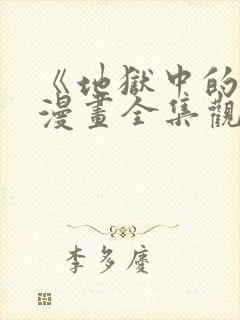 《地獄中的
漫畫全集觀
李多慶